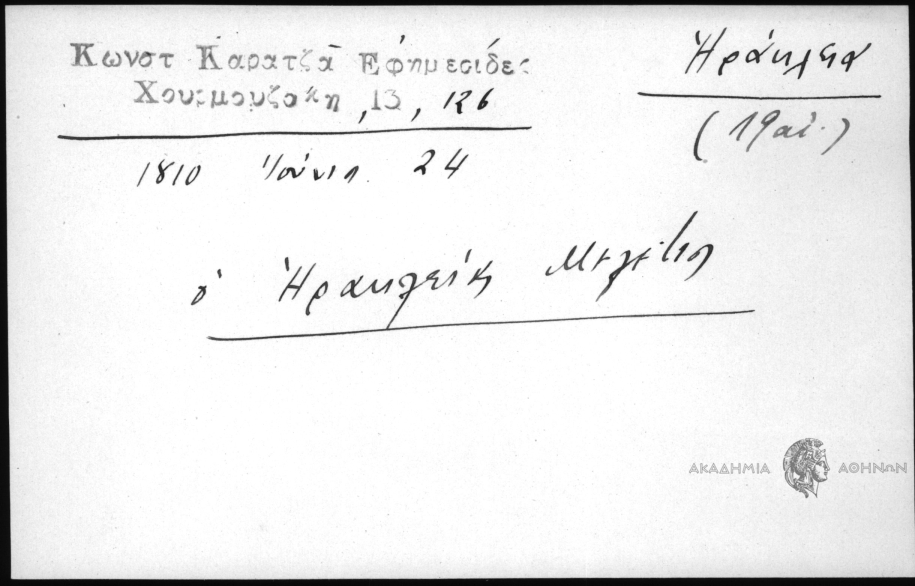 Κωνστ Καρατζᾶ Ἐφημερίδες
Χουρμουζάκη, 13, 126
Ἡράκλεια
(19 αἰ.)
1810 Ἰούνιος 24
ὁ Ἡρακλείας Μελέτιος
ΑΚΑΔΗΜΙΑ ΑΘΗΝΩΝ